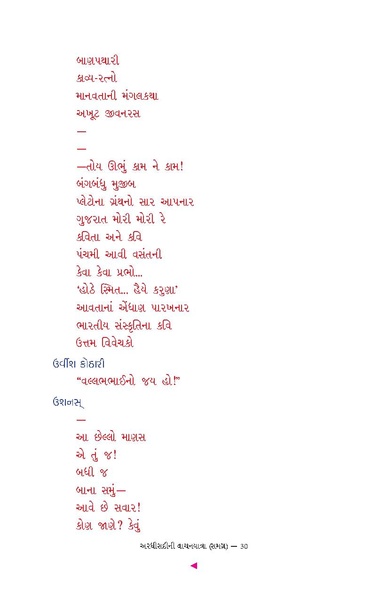 બાણપથારી
કાવ્ય-રત્નો
માનવતાની મંગલકથા
અખૂટ જીવનરસ
—
—
—તોય ઊભું કામ ને કામ!
બંગબંધુ મુજીબ
પ્લેટોના ગ્રંથનો સાર આપનાર
ગુજરાત મોરી મોરી રે
કવિતા અને કવિ
પંચમી આવી વસંતની
કેવા કેવા પ્રભો...
‘હોઠે સ્મિત... હૈયે કરુણા’
આવતાનાં એંધાણ પારખનાર
ભારતીય સંસ્કૃતિના કવિ
ઉત્તમ વિવેચકો
ઉર્વીશ કોઠારી
“વલ્લભભાઈનો જય હો!”
ઉશનસ્
—
આ છેલ્લો માણસ
એ તું જ!
બધી જ
બાના સમું—
આવે છે સવાર!
કોણ જાણે? કેવું
અરધીસદીની વાચનયાત્રા (સમગ્ર) — 30